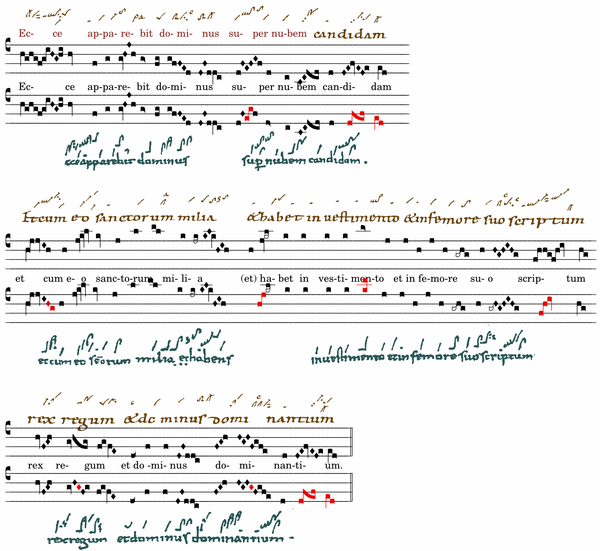 Ec- ce ap-pa- re- bit do- mi- nus su- per nu-bem candidam
Ec- ce ap-pa-re-bit do-mi- nus su- per nu- bem can-di- dam
ecce apparebit dominus sup nubem candidam .
Et cum eo sanctorum milia & habet in uestimento & in femore suo scriptum
et cum e- o sanc-to-rum mi-li- a (et) ha- bet in ves-ti- men-to et in fe-mo-re su- o scrip- tum
et cum eo scorum milia et habens in uestimento et in femore suo scriptum
rex regum & dc minus domi nantium
rex re- gum et do -mi-nus do- mi- nan-ti- um.
rex regum et dominus dominantium .